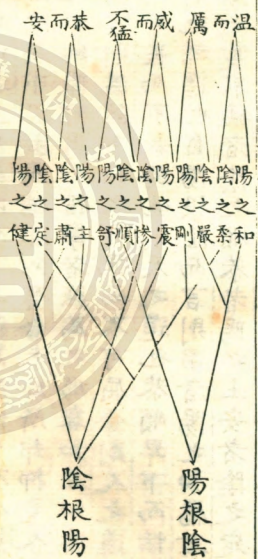 溫而厲
威而不猛
恭而安
陽之和
陰之柔
陰之嚴
陽之剛
陽之震
陰之慘
陰之順
陽之舒
陽之主
陰之肅
陰之定
陽之健
陽根陰
陰根陽